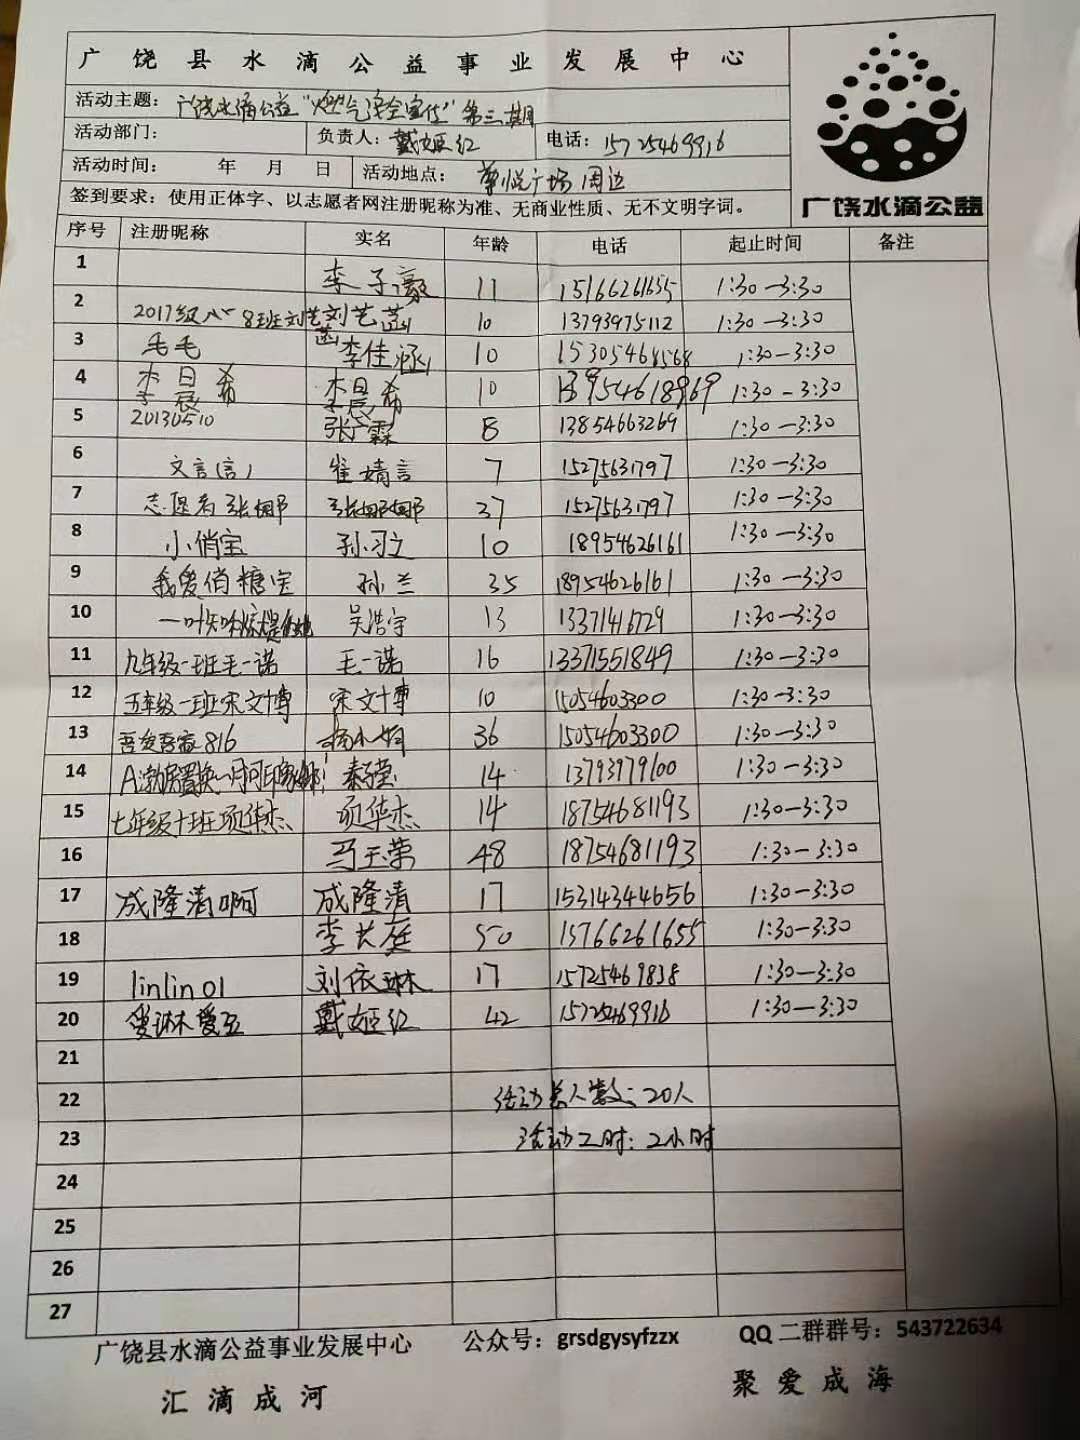 广饶县水滴公益事业发展中心
活动主题：广饶水滴公益"燃气安全宣传"第三期
活动部门： 负责人：戴姬红 电话：15725469916
活动时间： 年 月 日 活动地点： 华悦广场周边
签到要求：使用正体字、以志愿者网注册昵称为准、无商业性质、无不文明字词。
广饶水滴公益
序号 注册昵称 实名 年龄 电话 起止时间 备注
1 李子豪 11 15166261655 1:30-3:30
2 2017级八一8班刘艺菡 刘艺菡 10 13793975112 1:30-3:30
3 毛毛 李佳涵 10 15305468568 1:30-3:30
4 李晨希 李晨希 10 13954618969 1:30-3:30
5 20130510 张广霖 8 13854663269 1:30-3:30
6 文言(言) 崔婧言 7 15275631797 1:30-3:30
7 志愿者张娜 张娜娜 37 15275631797 1:30-3:30
8 小俏宝 孙习之 10 18954626161 1:30-3:30
9 我爱俏糖宝 孙兰 35 18954626161 1:30-3:30
10 吴浩宇 13 13371416729 1:30-3:30
11 九年级一班毛一诺 毛一诺 16 13371551849 1:30-3:30
12 五年级一班宋文博 宋文博 10 15054603300 1:30-3:30
13 吾爱吾家816 36 15054603300 1:30-3:30
14 14 13793979100 1:30-3:30
15 七年级十班项华杰 项华杰 14 18754681193 1:30-3:30
16 马玉荣 48 18754681193 1:30-3:30
17 成隆清啊 成隆清 17 15314344656 1:30-3:30
18 李长庭 50 15766261655 1:30-3:30
19 linlin01 刘依琳 17 15725469838 1:30-3:30
20 爱琳爱五 戴姬红 42 15725469916 1:30-3:30
21
22 活动总人数：20人
23 活动工时：2小时
24
25
26
27
广饶县水滴公益事业发展中心 公众号：grsdgysyfzzx QQ二群群号：543722634
汇滴成河 聚爱成海